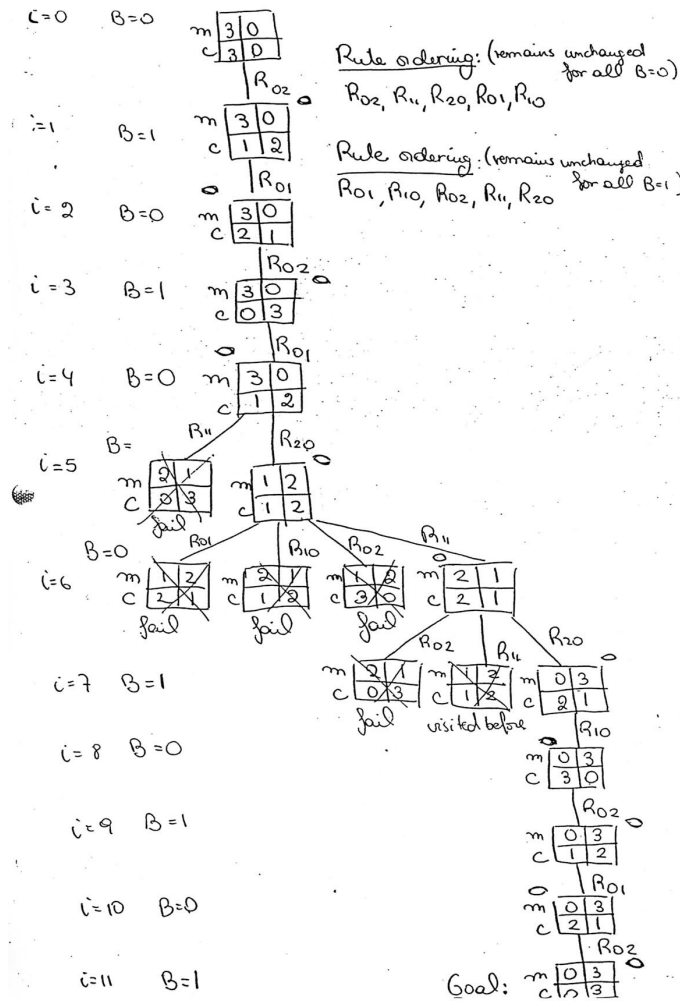 i=0 B=0 m 3 0
c 3 0
R02
Rule ordering: (remains unchanged
for all B=0)
R02, R11, R20, R01, R10
i=1 B=1 m 3 0
c 1 2
Rule ordering: (remains unchanged
for all B=1)
R01, R10, R02, R11, R20
R01
i=2 B=0 m 3 0
c 2 1
R02
i=3 B=1 m 3 0
c 0 3
R01
i=4 B=0 m 3 0
c 1 2
R11 R20
i=5 B= m 2 1 m 1 2
c 0 3 c 1 2
fail
R01 R10 R02 R11
i=6 B=0 m 1 2 m 2 1 m 1 2 m 2 1
c 2 1 c 1 2 c 3 0 c 2 1
fail fail fail
R02 R11 R20
i=7 B=1 m 2 1 m 1 2 m 0 3
c 0 3 c 1 2 c 2 1
fail visited before
R10
i=8 B=0 m 0 3
c 3 0
R02
i=9 B=1 m 0 3
c 1 2
R01
i=10 B=0 m 0 3
c 2 1
R02
i=11 B=1 Goal: m 0 3
c 0 3